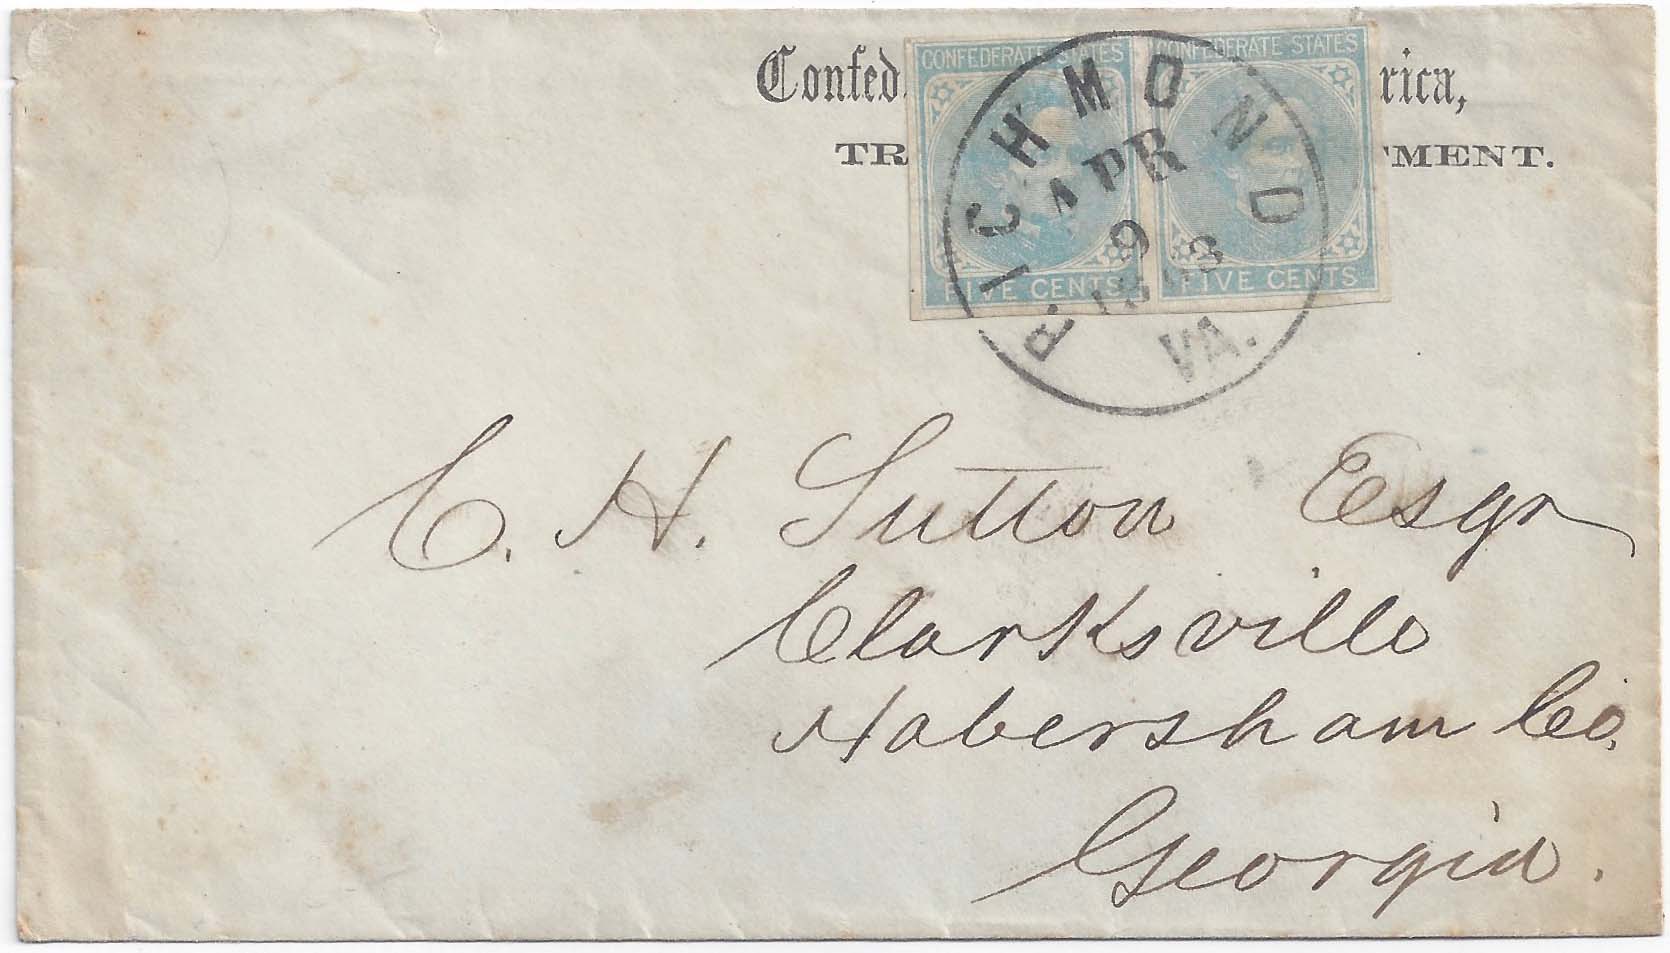 Confed rica,
TR TMENT.
CONFEDERATE STATES CONFEDERATE STATES
FIVE CENTS FIVE CENTS
RICHMOND
APR
9
1863
VA.
C. H. Sutton Esqr
Clarksville
Habersham Co.
Georgia.